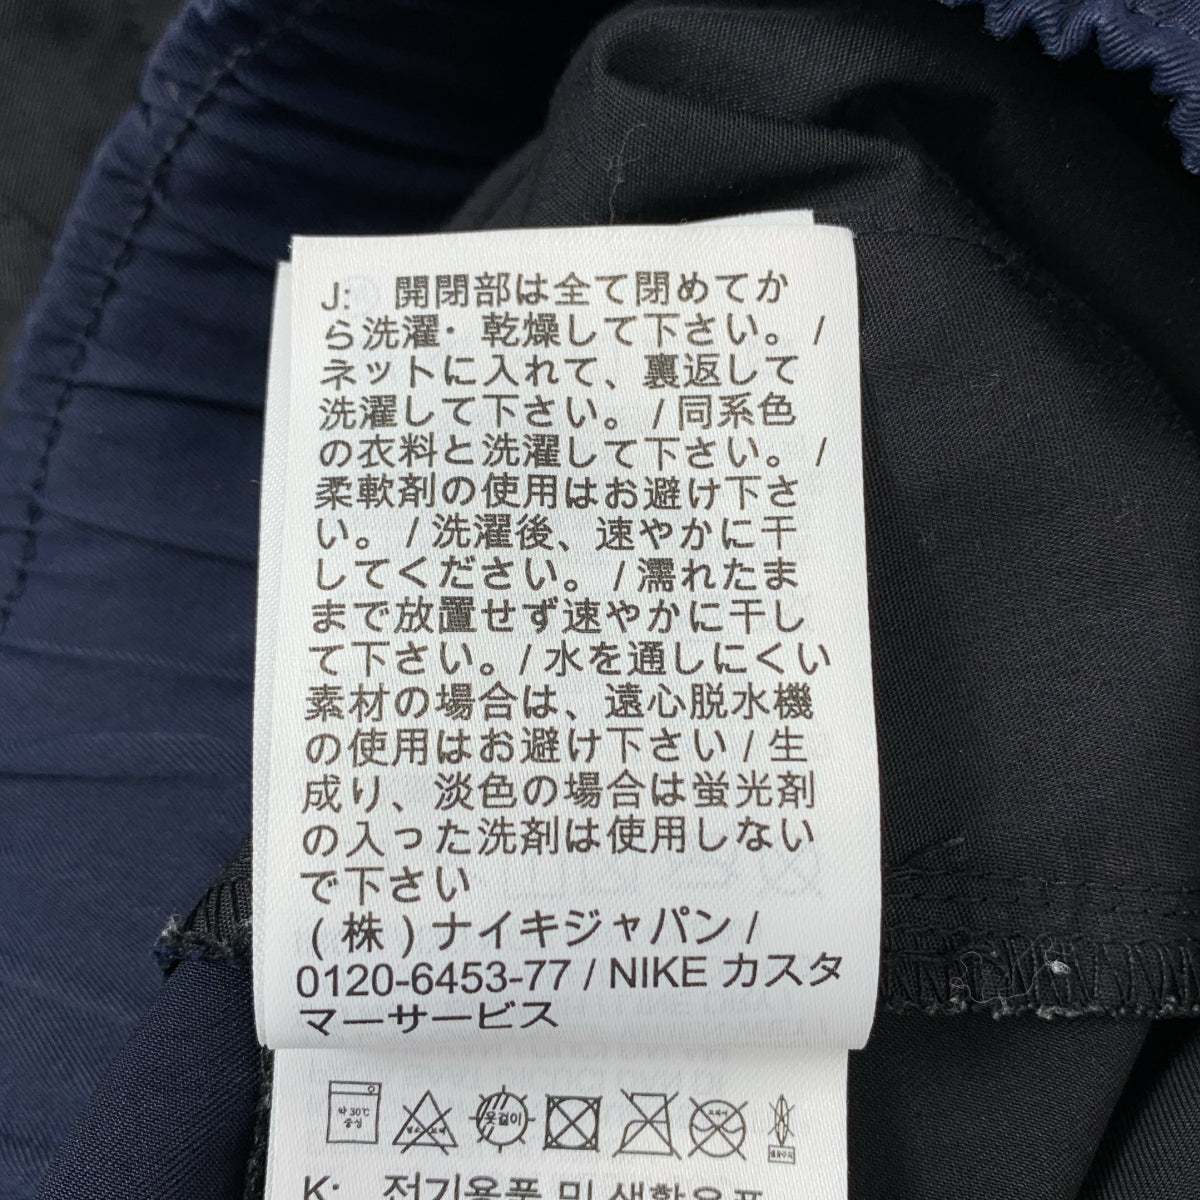 J: 開閉部は全て閉めてか
ら洗濯・乾燥して下さい。/
ネットに入れて、裏返して
洗濯して下さい。/ 同系色
の衣料と洗濯して下さい。/
柔軟剤の使用はお避け下さ
い。/ 洗濯後、速やかに干
してください。/ 濡れたま
まで放置せず速やかに干し
て下さい。/ 水を通しにくい
素材の場合は、遠心脱水機
の使用はお避け下さい / 生
成り、淡色の場合は蛍光剤
の入った洗剤は使用しない
で下さい
(株)ナイキジャパン /
0120-6453-77 / NIKE カスタ
マーサービス
약 30℃
중성
옷걸이
K: 전기용품 및 생활용품